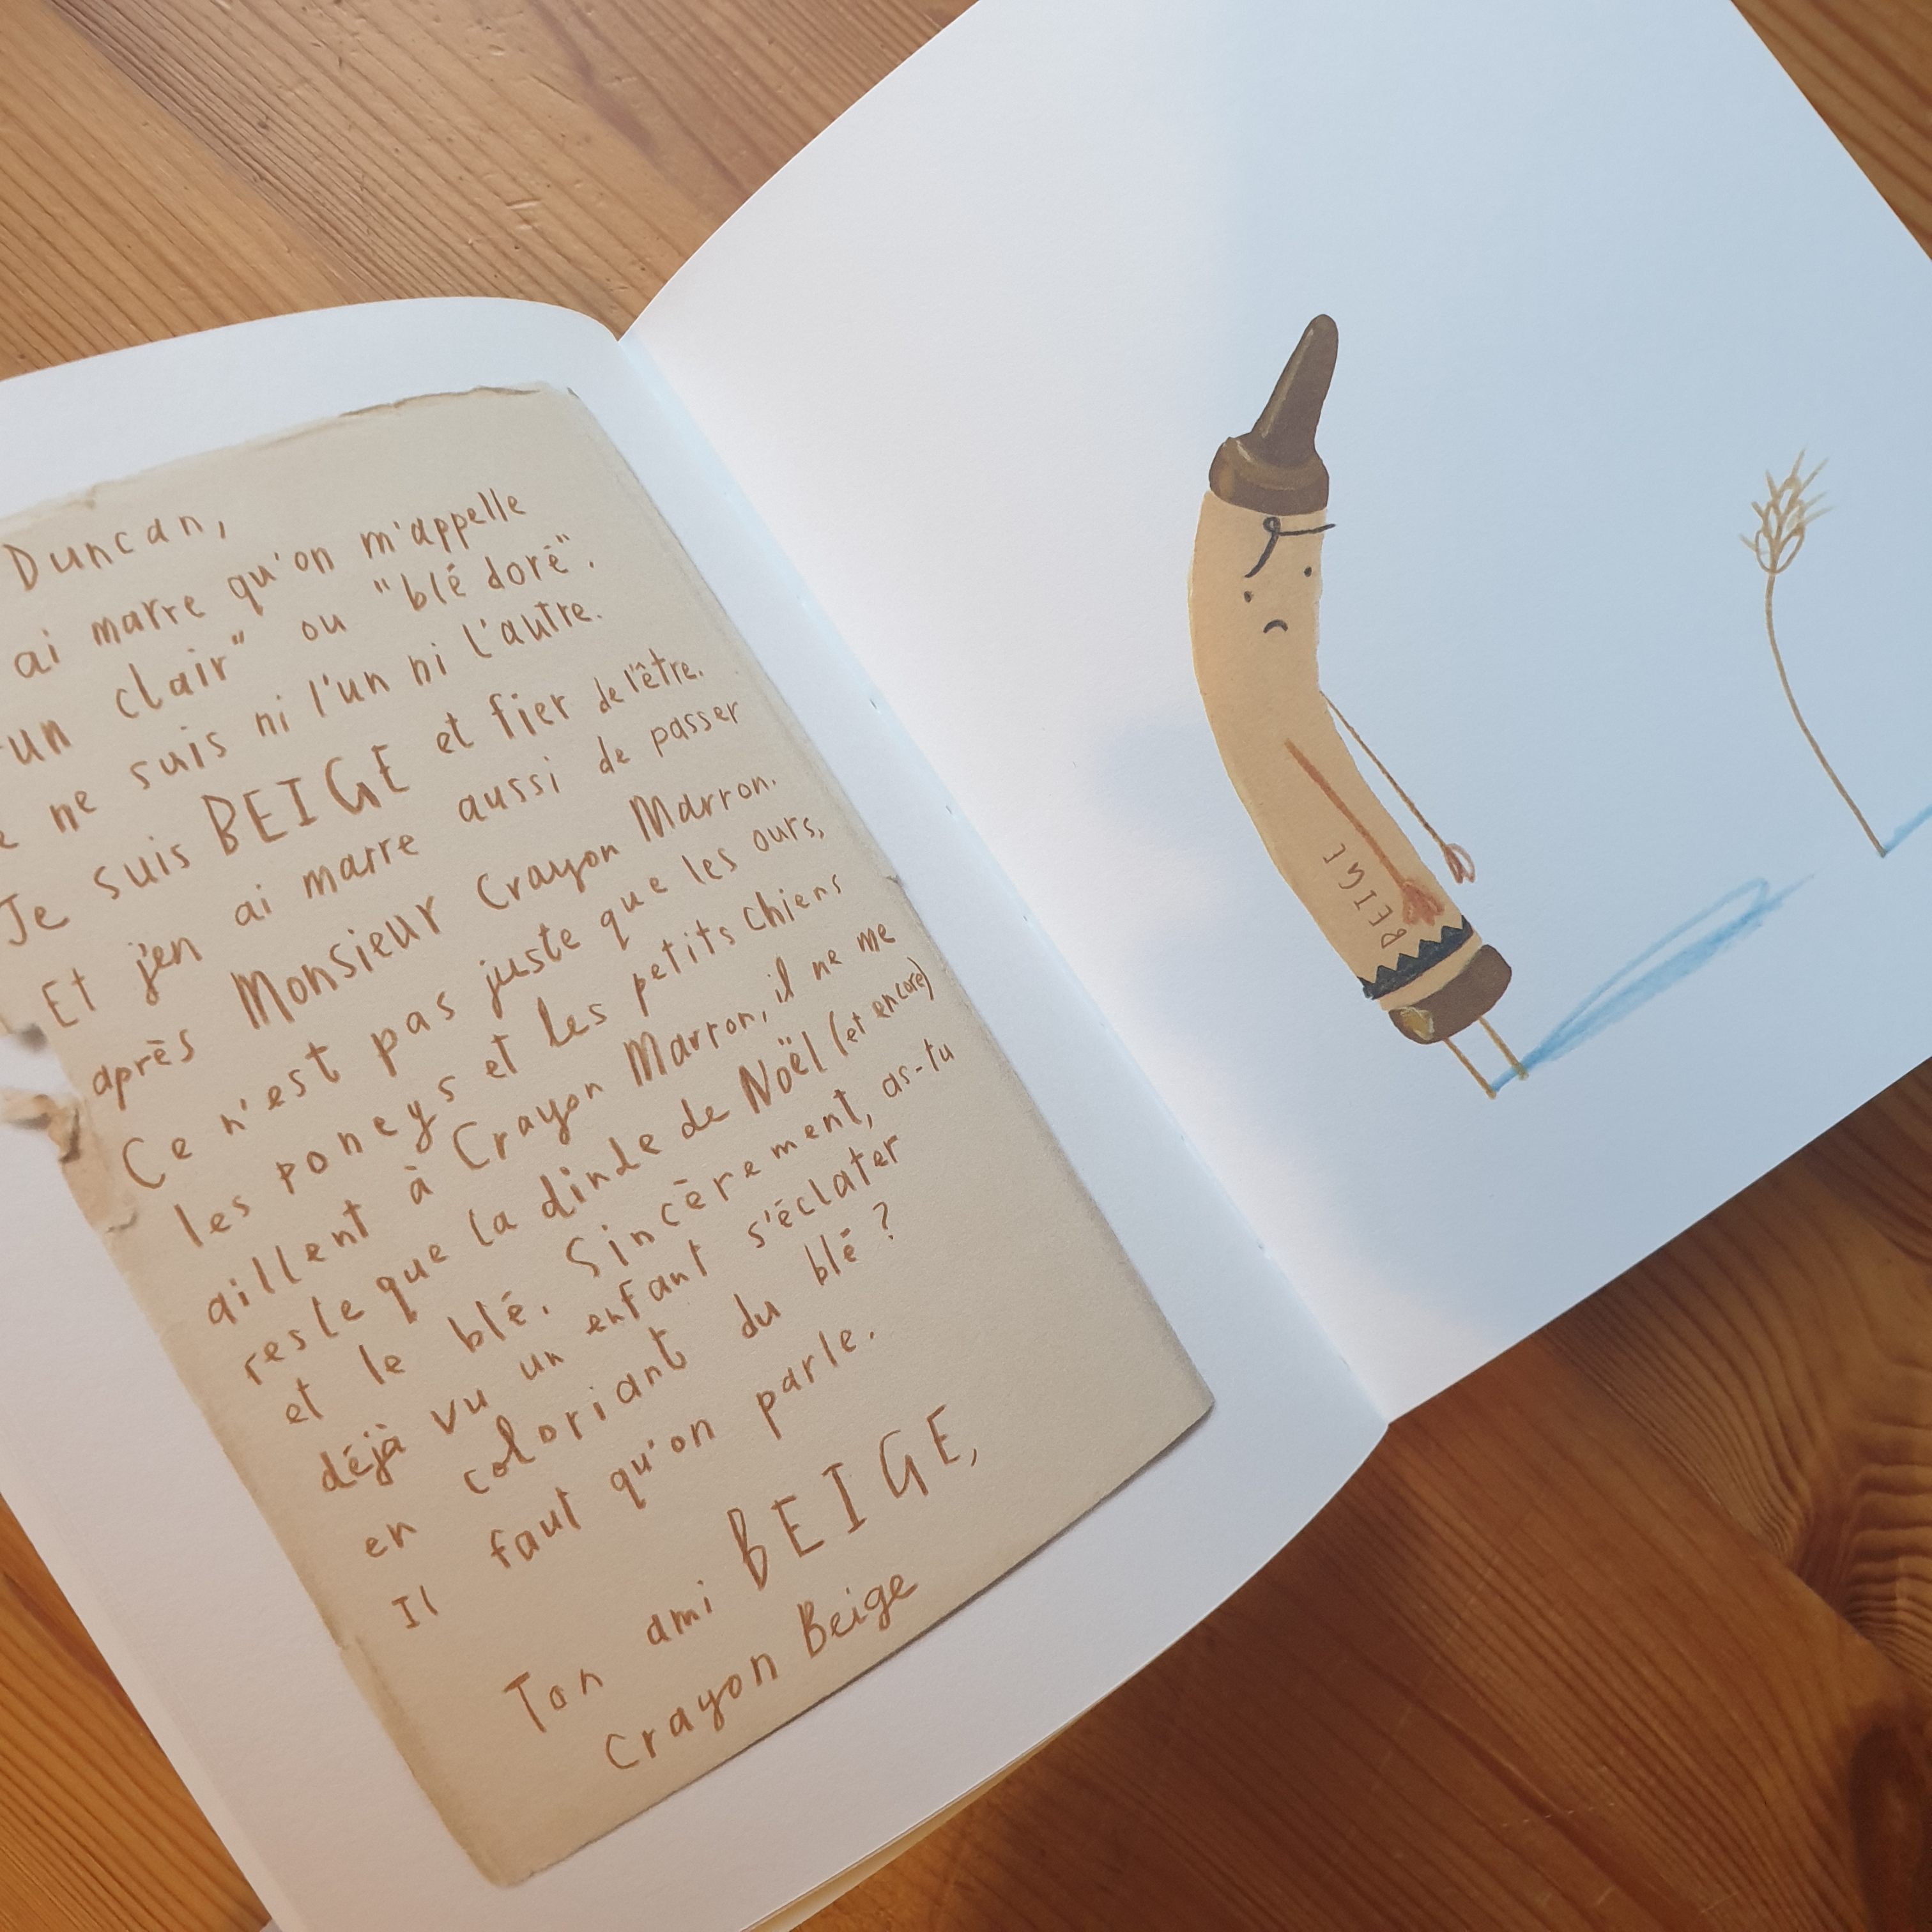 Duncan,
ai marre qu'on m'appelle
un clair" ou "blé doré".
ne suis ni l'un ni l'autre.
Je suis BEIGE et fier de l'être.
Et j'en ai marre aussi de passer
après Monsieur Crayon Marron.
Ce n'est pas juste que les ours,
les poneys et les petits chiens
aillent à Crayon Marron, il ne me
reste que la dinde de Noël (et encore)
et le blé. Sincèrement, as-tu
déjà vu un enfant s'éclater
en coloriant du blé ?
Il faut qu'on parle.
Ton ami BEIGE,
Crayon Beige
BEIGE